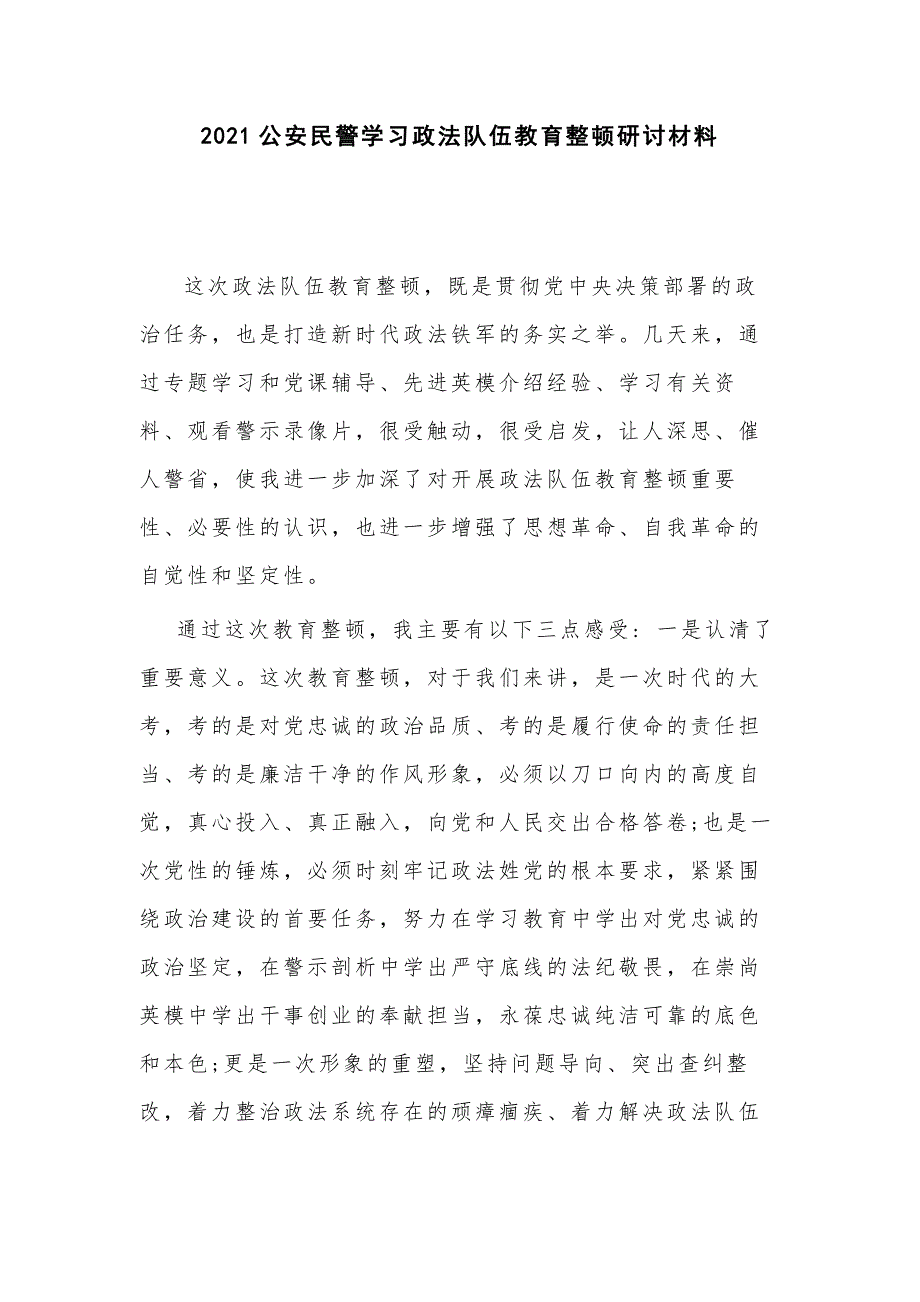 2021公安民警学习政法队伍教育整顿研讨材料
这次政法队伍教育整顿，既是贯彻党中央决策部署的政
治任务，也是打造新时代政法铁军的务实之举。几天来，通
过专题学习和党课辅导、先进英模介绍经验、学习有关资
料、观看警示录像片，很受触动，很受启发，让人深思、催
人警省，使我进一步加深了对开展政法队伍教育整顿重要
性、必要性的认识，也进一步增强了思想革命、自我革命的
自觉性和坚定性。
通过这次教育整顿，我主要有以下三点感受: 一是认清了
重要意义。这次教育整顿，对于我们来讲，是一次时代的大
考，考的是对党忠诚的政治品质、考的是履行使命的责任担
当、考的是廉洁干净的作风形象，必须以刀口向内的高度自
觉，真心投入、真正融入，向党和人民交出合格答卷;也是一
次党性的锤炼，必须时刻牢记政法姓党的根本要求，紧紧围
绕政治建设的首要任务，努力在学习教育中学出对党忠诚的
政治坚定，在警示剖析中学出严守底线的法纪敬畏，在崇尚
英模中学出干事创业的奉献担当，永葆忠诚纯洁可靠的底色
和本色;更是一次形象的重塑，坚持问题导向、突出查纠整
改，着力整治政法系统存在的顽瘴痼疾、着力解决政法队伍